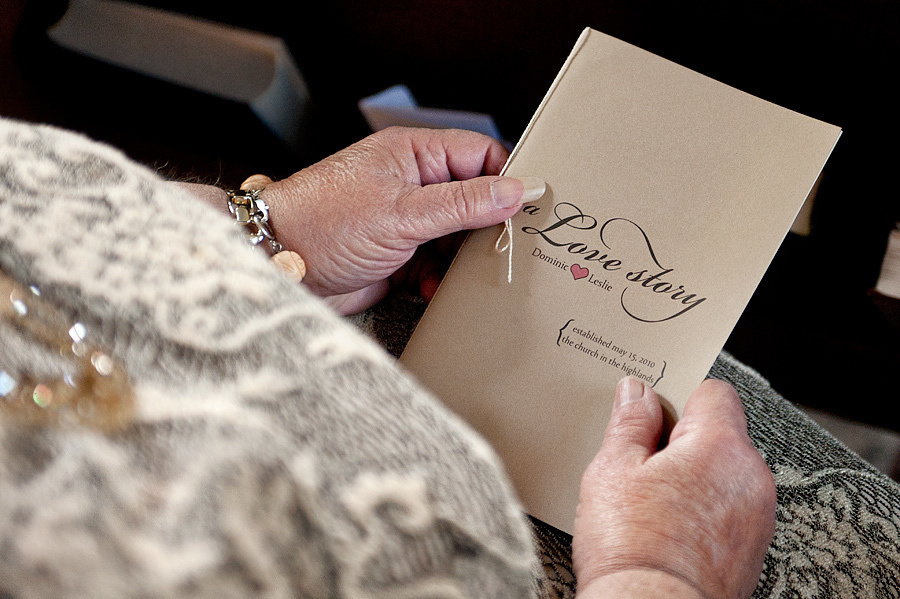 a Love story
Dominic Leslie
{established may 15, 2010
the church in the highlands}